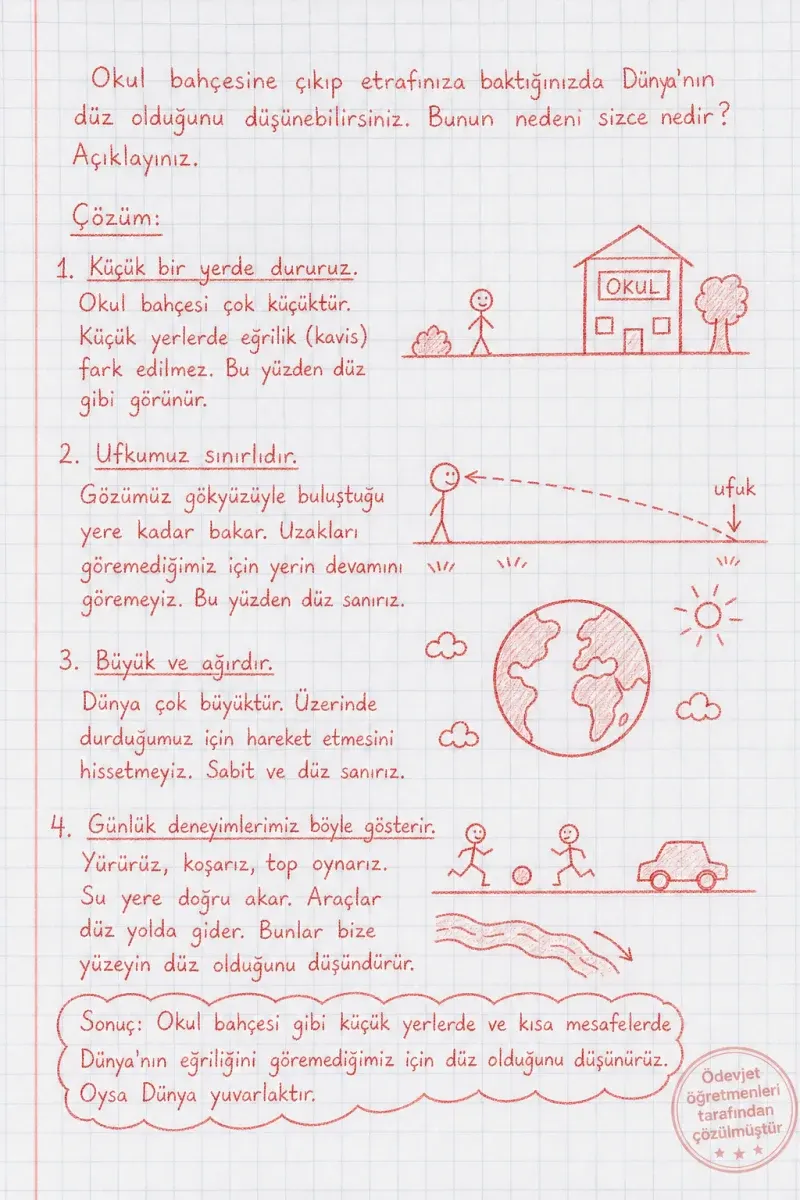 Okul bahçesine çıkıp etrafınıza baktığınızda Dünya'nın
düz olduğunu düşünebilirsiniz. Bunun nedeni sizce nedir?
Açıklayınız.
Çözüm:
1. Küçük bir yerde dururuz.
Okul bahçesi çok küçüktür.
Küçük yerlerde eğrilik (kavis)
fark edilmez. Bu yüzden düz
gibi görünür.
OKUL
2. Ufkumuz sınırlıdır.
Gözümüz gökyüzüyle buluştuğu
yere kadar bakar. Uzakları
göremediğimiz için yerin devamını
göremeyiz. Bu yüzden düz sanırız.
ufuk
3. Büyük ve ağırdır.
Dünya çok büyüktür. Üzerinde
durduğumuz için hareket etmesini
hissetmeyiz. Sabit ve düz sanırız.
4. Günlük deneyimlerimiz böyle gösterir.
Yürürüz, koşarız, top oynarız.
Su yere doğru akar. Araçlar
düz yolda gider. Bunlar bize
yüzeyin düz olduğunu düşündürür.
Sonuç: Okul bahçesi gibi küçük yerlerde ve kısa mesafelerde
Dünya'nın eğriliğini göremediğimiz için düz olduğunu düşünürüz.
Oysa Dünya yuvarlaktır.
Ödevjet
öğretmenleri
tarafından
çözülmüştür